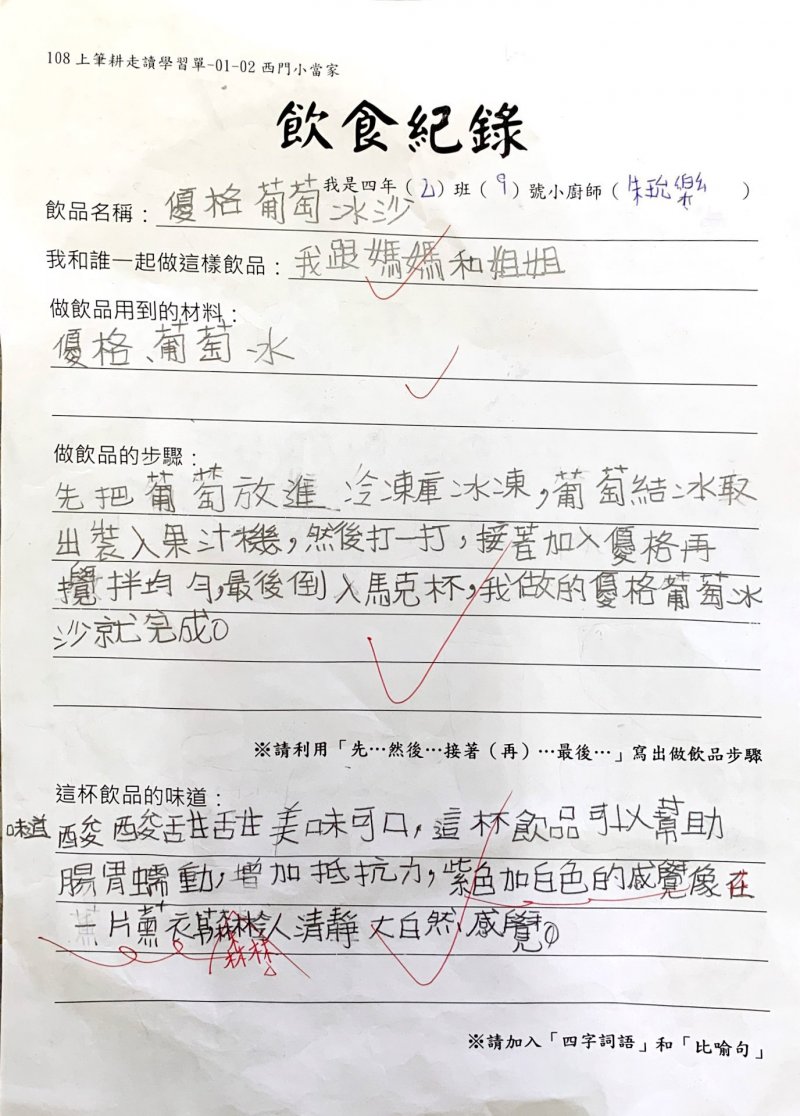 108 上筆耕走讀學習單-01-02 西門小當家
飲食紀錄
我是四年（乙）班（9）號小廚師（朱　樂）
飲品名稱：優格葡萄冰沙
我和誰一起做這樣飲品：我跟媽媽和姐姐
做飲品用到的材料：
優格、葡萄、冰
做飲品的步驟：
先把葡萄放進冷凍庫冰凍，葡萄結冰取
出裝入果汁機，然後打一打，接著加入優格再
攪拌均勻，最後倒入馬克杯，我做的優格葡萄冰
沙就完成。
※請利用「先…然後…接著（再）…最後…」寫出做飲品步驟
這杯飲品的味道：
味道酸酸甜甜美味可口，這杯飲品可以幫助
腸胃蠕動，增加抵抗力，紫色加白色的感覺像在
一片薰衣草森林給人清靜大自然感覺。
森林
※請加入「四字詞語」和「比喻句」